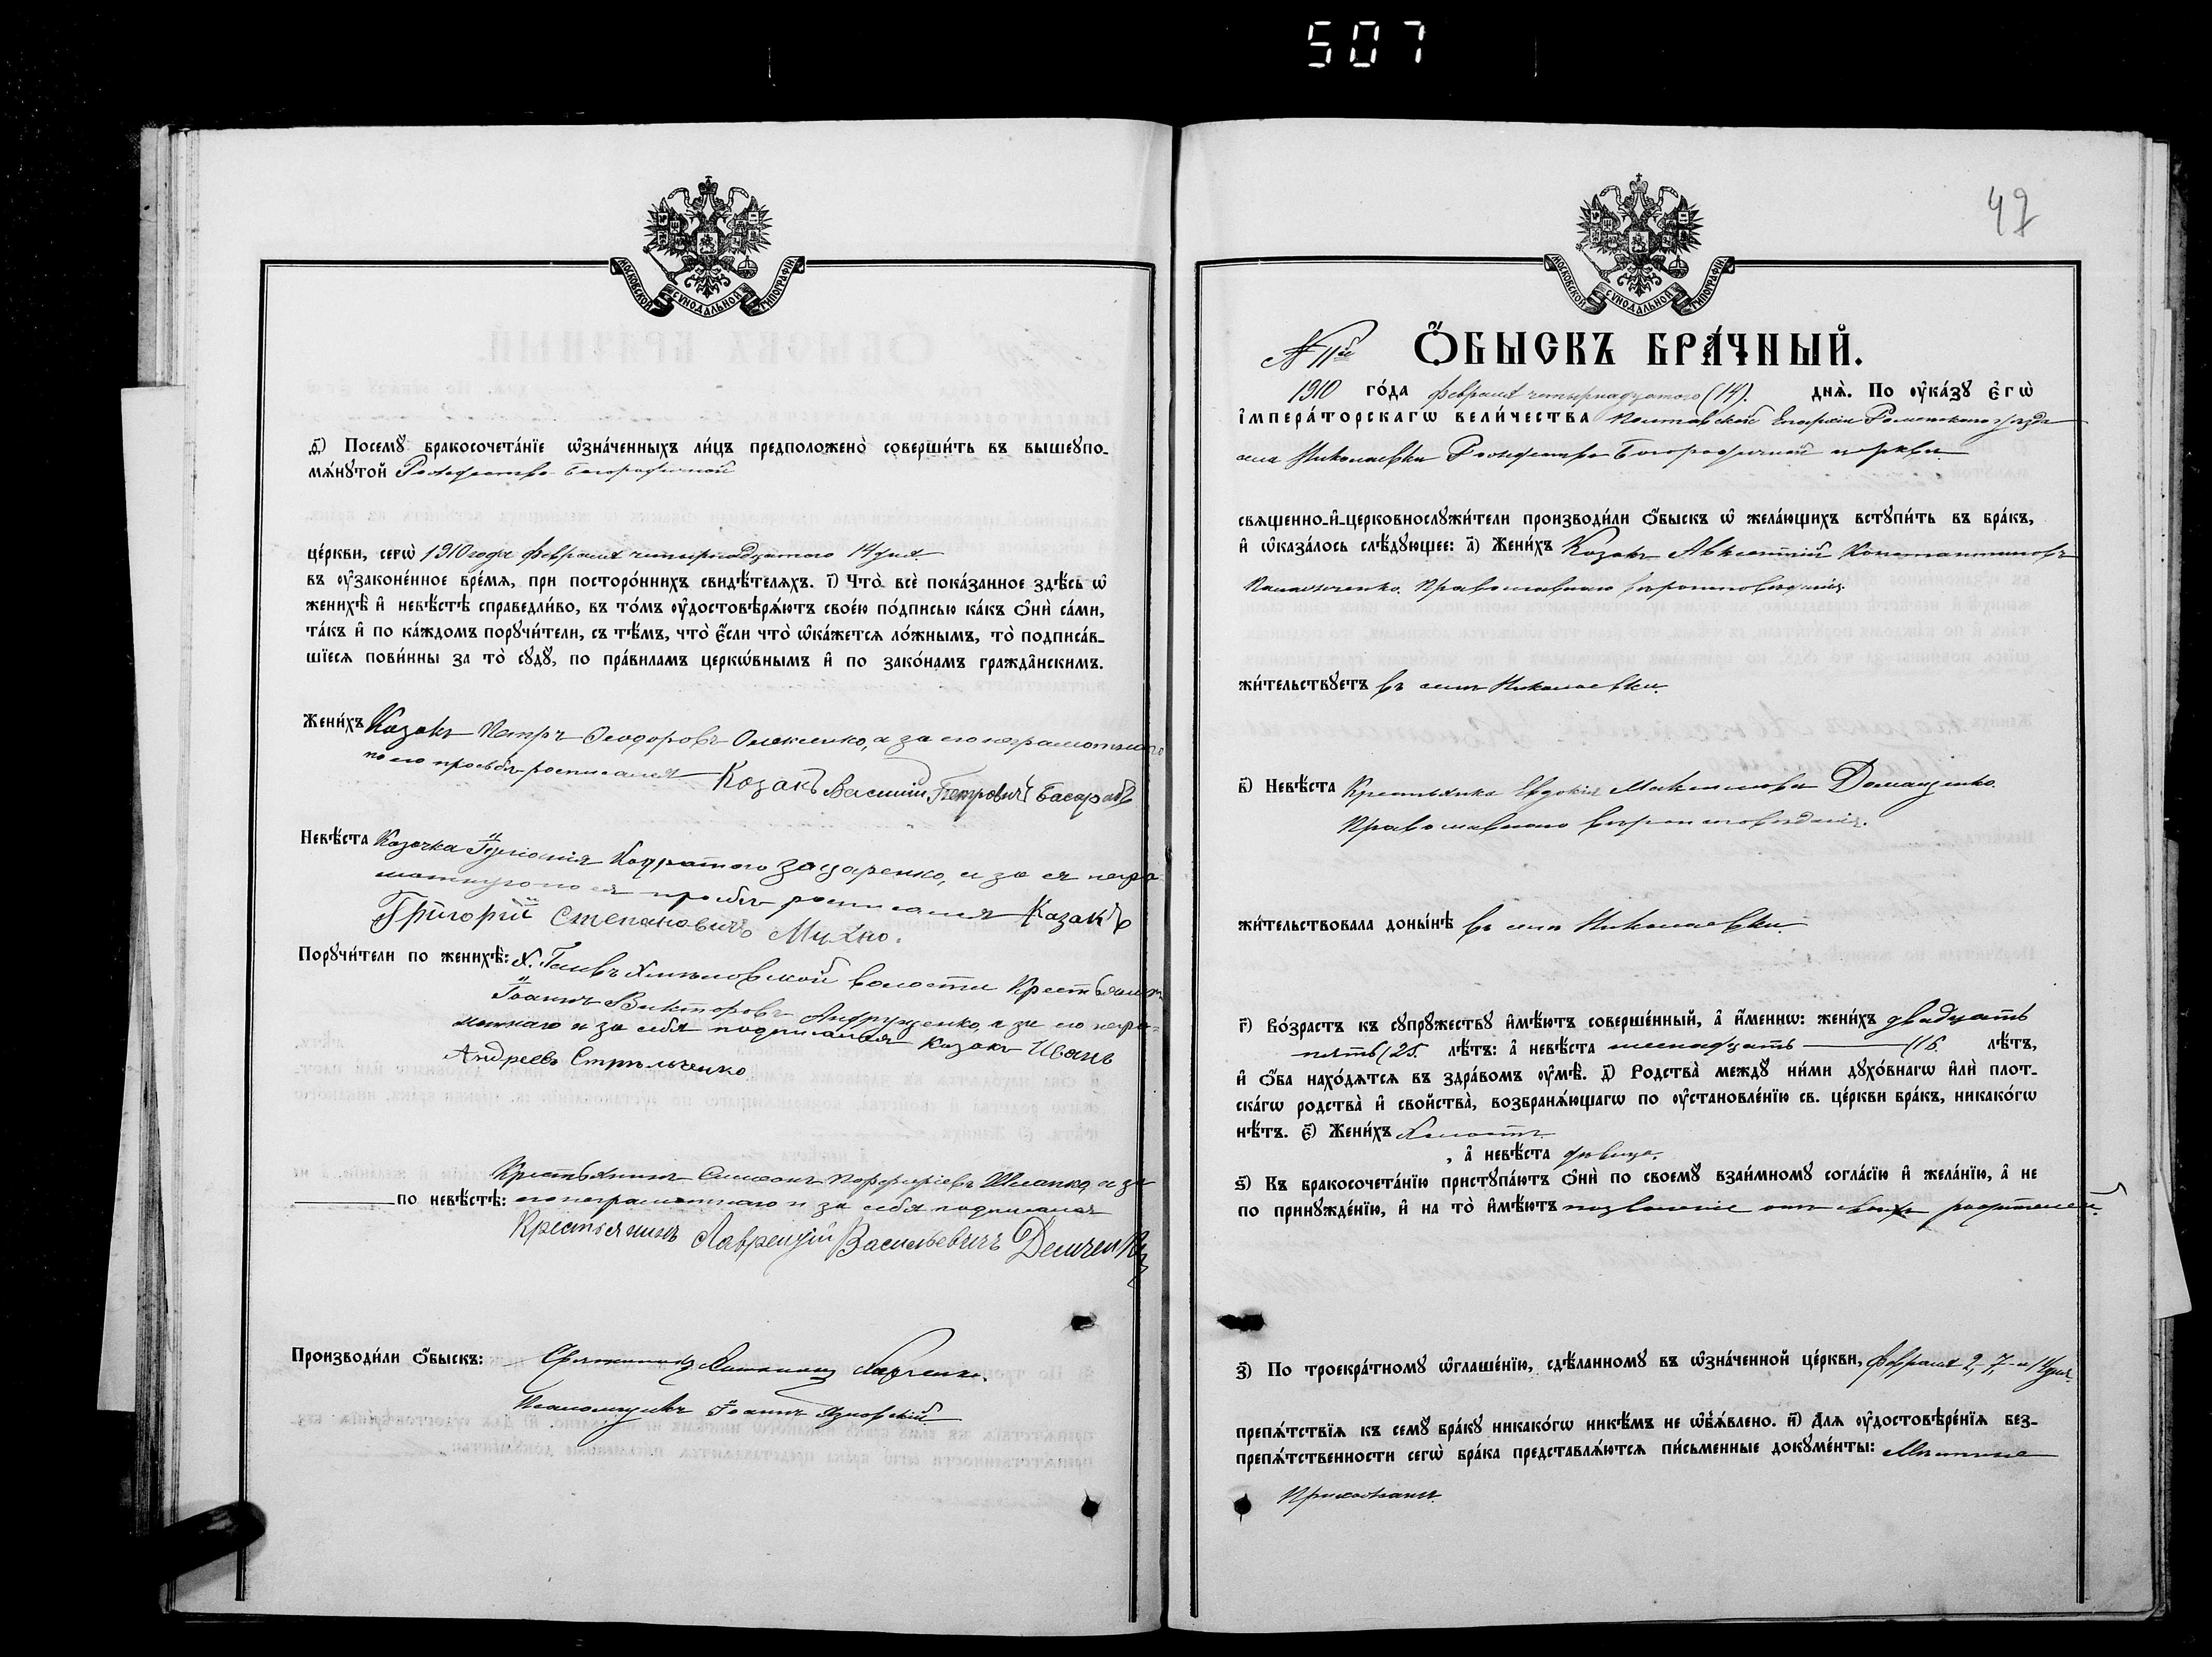 507
МОСКОВСКОЙ СѴНОДАЛЬНОЙ ТИПОГРАФІИ
д҃і) Посемꙋ̀ бракосочета́нїе ѡ҆зна́ченныхъ ли́цъ предположено̀ соверши́ть въ вышеꙋпо-
мѧ́нꙋтой Рождество-Богородичной
це́ркви, сегѡ̀ 1910 года февраля четырнадцатого 14 дня
въ ᲂу҆законе́нное вре́мѧ, при посторо́ннихъ свидѣ́телѧхъ. і҃) Что̀ всѐ пока́занное здѣ́сь ѡ҆
женихѣ̀ и҆ невѣ́стѣ справедли́во, въ то́мъ ᲂу҆достовѣрѧ́ютъ свое́ю по́дписью ка́къ ѻ҆нѝ са́ми,
та́къ и҆ по ка́ждомъ порꙋчи́тели, съ тѣ́мъ, что̀ є҆́сли что̀ ѡ҆ка́жетсѧ ло́жнымъ, то̀ подписа́в-
шїесѧ пови́нны за то̀ сꙋдꙋ̀, по пра́виламъ церкѡ́внымъ и҆ по зако́намъ гражда̂нскимъ.
Жени́хъ Козакъ Петръ Ѳеодоровъ Олексенко, а за его неграмотнаго
по его просьбѣ росписался Козакъ Василій Петровичъ Басарабъ
Невѣ́ста Козачка Захаренко, а за ея негра-
мотную по ея просьбѣ росписался Казакъ
Григорій Степановичъ Мухно.
Порꙋчи́тели по женихѣ̀: волости Крестьянинъ
Іоаннъ Викторовъ Андрущенко, а за его негра-
мотнаго и за себя подписался Козакъ Иванъ
Андреевъ Стрельченко
Крестьянинъ Симеонъ Порфиріевъ а за
по невѣ́стѣ: его неграмотнаго и за себя подписался
Крестьянинъ Лаврентій Васильевичъ Демченко
Производи́ли ѻ҆́быскъ: Священникъ
Псаломщикъ Іоаннъ
47
МОСКОВСКОЙ СѴНОДАЛЬНОЙ ТИПОГРАФІИ
№ 11й Ѻ҆́БЫСКЪ БРА́ЧНЫЙ.
1910 го́да февраля четырнадцатого (14). днѧ̀. По ᲂу҆ка́зꙋ є҆гѡ̀
і҆мпера́торскагѡ вели́чества Полтавской Епархіи Роменского уѣзда
села Николаевки Рождество-Богородичной церкви
свѧщенно-и҆-церковнослꙋжи́тели производи́ли ѻ҆́быскъ ѡ҆ жела́ющихъ встꙋпи́ть въ бра́къ,
и҆ ѡ҆каза́лось слѣ́дꙋющее: а҃) Жени́хъ Козакъ Авксентій Константиновъ
Православного вѣроисповѣданія.
жи́тельствꙋетъ въ селѣ Николаевки.
в҃) Невѣ́ста Крестьянка Евдокія Максимова Доманценко.
Православного вѣроисповѣданія.
жи́тельствовала доны́нѣ въ селѣ Николаевки.
г҃) Во́зрастъ къ сꙋпрꙋжествꙋ и҆мѣ́ютъ соверше́нный, а҆ и҆́меннѡ: жени́хъ двадцать
пять (25. лѣ́тъ: а҆ невѣ́ста шеснадцать (16. лѣ́тъ,
и҆ ѻ҆́ба нахо́дѧтсѧ въ здра́вомъ ᲂу҆мѣ̀. д҃) Родства̀ междꙋ̀ ни́ми дꙋхо́внагѡ и҆лѝ плот-
ска́гѡ родства̀ и҆ свойства̀, возбранѧ́ющагѡ по ᲂу҆становле́нїю св. це́ркви бра́къ, никако́гѡ
нѣ́тъ. є҃) Жени́хъ холостъ
, а҆ невѣ́ста дѣвица.
ѕ҃) Къ бракосочета́нїю пристꙋпа́ютъ ѻ҆нѝ по своемꙋ̀ взаи́мномꙋ согла́сїю и҆ жела́нїю, а҆ не
по принꙋжде́нїю, и҆ на то̀ и҆мѣ́ютъ позволеніе отъ своихъ родителей.
з҃) По троекра́тномꙋ ѡ҆глаше́нїю, сдѣ́ланномꙋ въ ѡ҆зна́ченной це́ркви, февраля 2, 7 и 14 дня.
препѧ́тствїѧ къ семꙋ̀ бра́кꙋ никако́гѡ никѣ́мъ не ѡ҆б̾ѧ́влено. и҃) Длѧ ᲂу҆достовѣре́нїѧ без-
препѧ́тственности сегѡ̀ бра́ка представлѧ́ютсѧ пи́сьменные докꙋме́нты: Мѣстные
Прихожане.